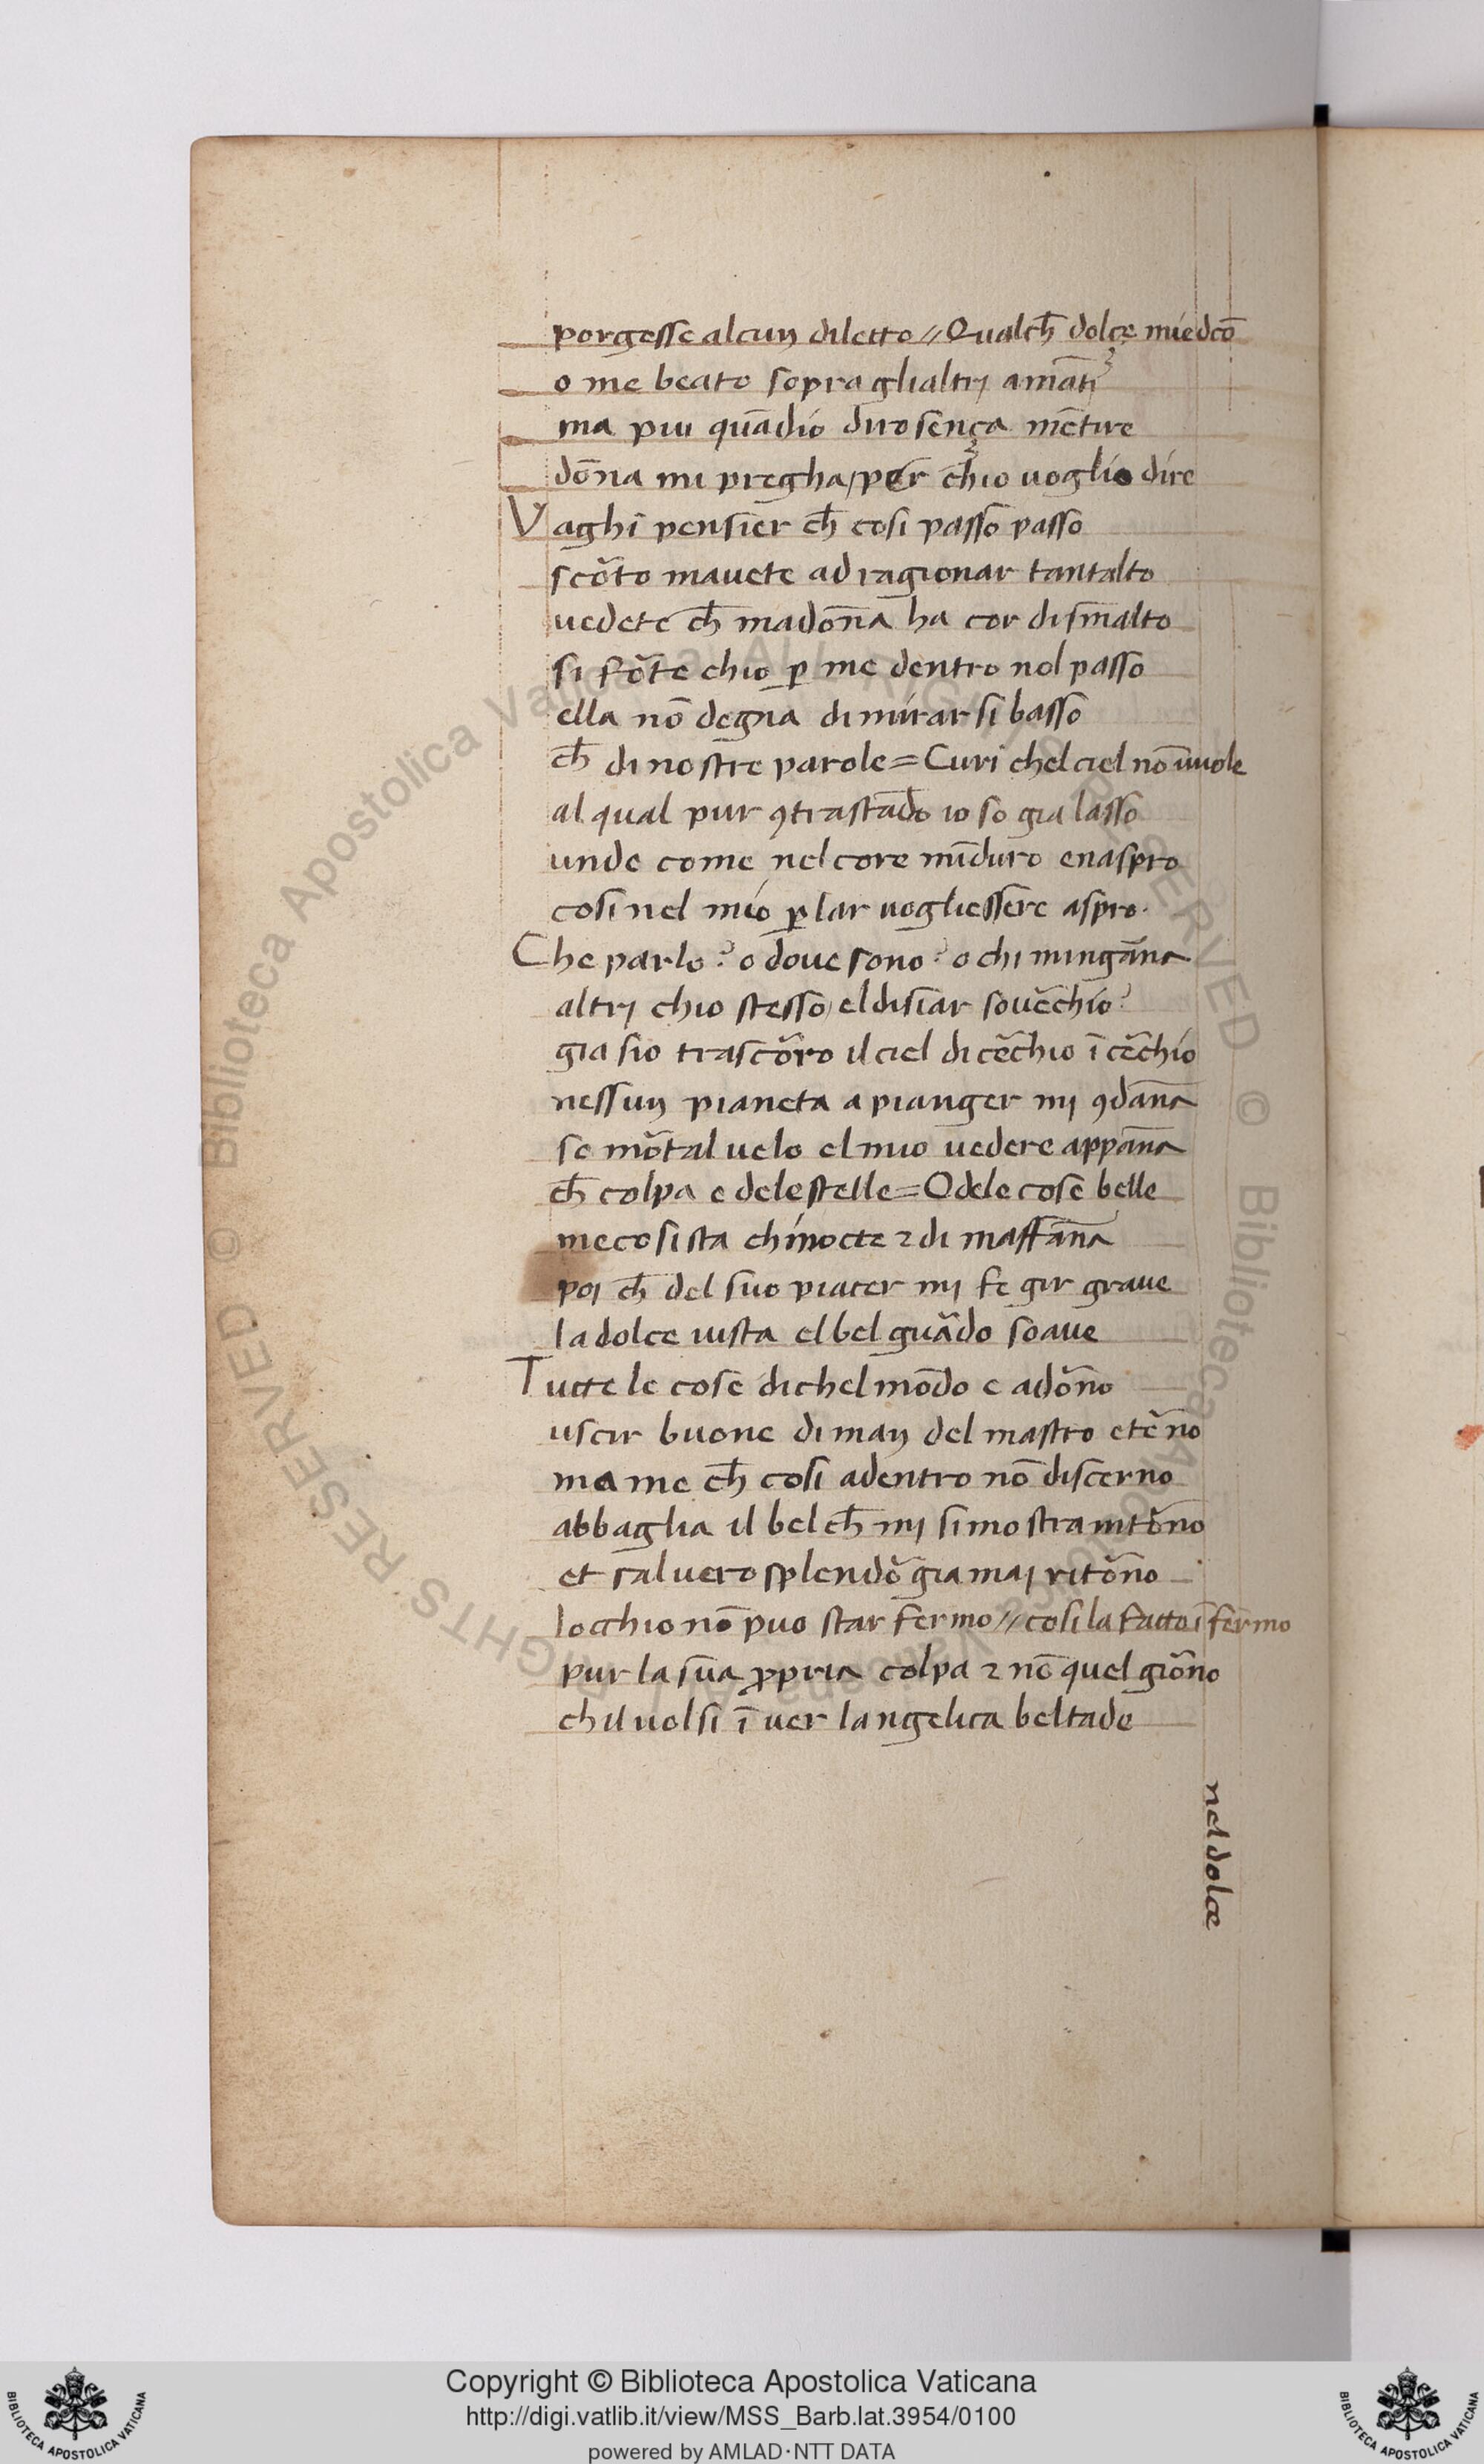 porgesse alcun diletto // Qualch̄ dolce miedcō
o me beato sopra glialtri amāti
ma piu quādio diro sença mētire
dōna mi pregha / per ch̄io uoglio dire
Vaghi pensier ch̄ cosi passo passo
scōto mauete ad ragionar tantalto
uedete ch̄ madōna ha cor dismalto
si fōte chio ꝑ me dentro nol passo
ella nō degna di mirar si basso
ch̄ di nostre parole = Curi chel ciel nō ī uuole
al qual pur ꝯtrastādo io so gia lasso
unde come nel core mīduro enaspro
cosi nel mio ꝑlar uogliessere aspro.
Che parlo? o doue sono? o chi mingāna
altri chio stesso, el disiar souēchio?
gia sio trascōro il ciel di cēchio ī cēchio
nessun pianeta a pianger mi ꝯdāna
se mōtal uelo el mio uedere appāna
ch̄ colpa e dele stelle = O dele cose belle
meco si sta chi nocte ⁊ di maffāna
poi ch̄ del suo piacer mi fe gir graue
la dolce uista el bel guādo soaue
Tucte le cose di chel mōdo e adōno
uscir buone di man del mastro etēno
ma me ch̄ cosi adentro nō discerno
abbaglia il bel ch̄ mi si mostra intōno
et sal uero splendō gia mai ritōno
locchio nō puo star fermo // cosi la facto ī fermo
pur la sua ꝓpria colpa ⁊ nō quel giōno
chil uolsi ī uer langelica beltade
nel dolce
Copyright © Biblioteca Apostolica Vaticana
http://digi.vatlib.it/view/MSS_Barb.lat.3954/0100
powered by AMLAD·NTT DATA
BIBLIOTECA APOSTOLICA VATICANA
BIBLIOTECA APOSTOLICA VATICANA